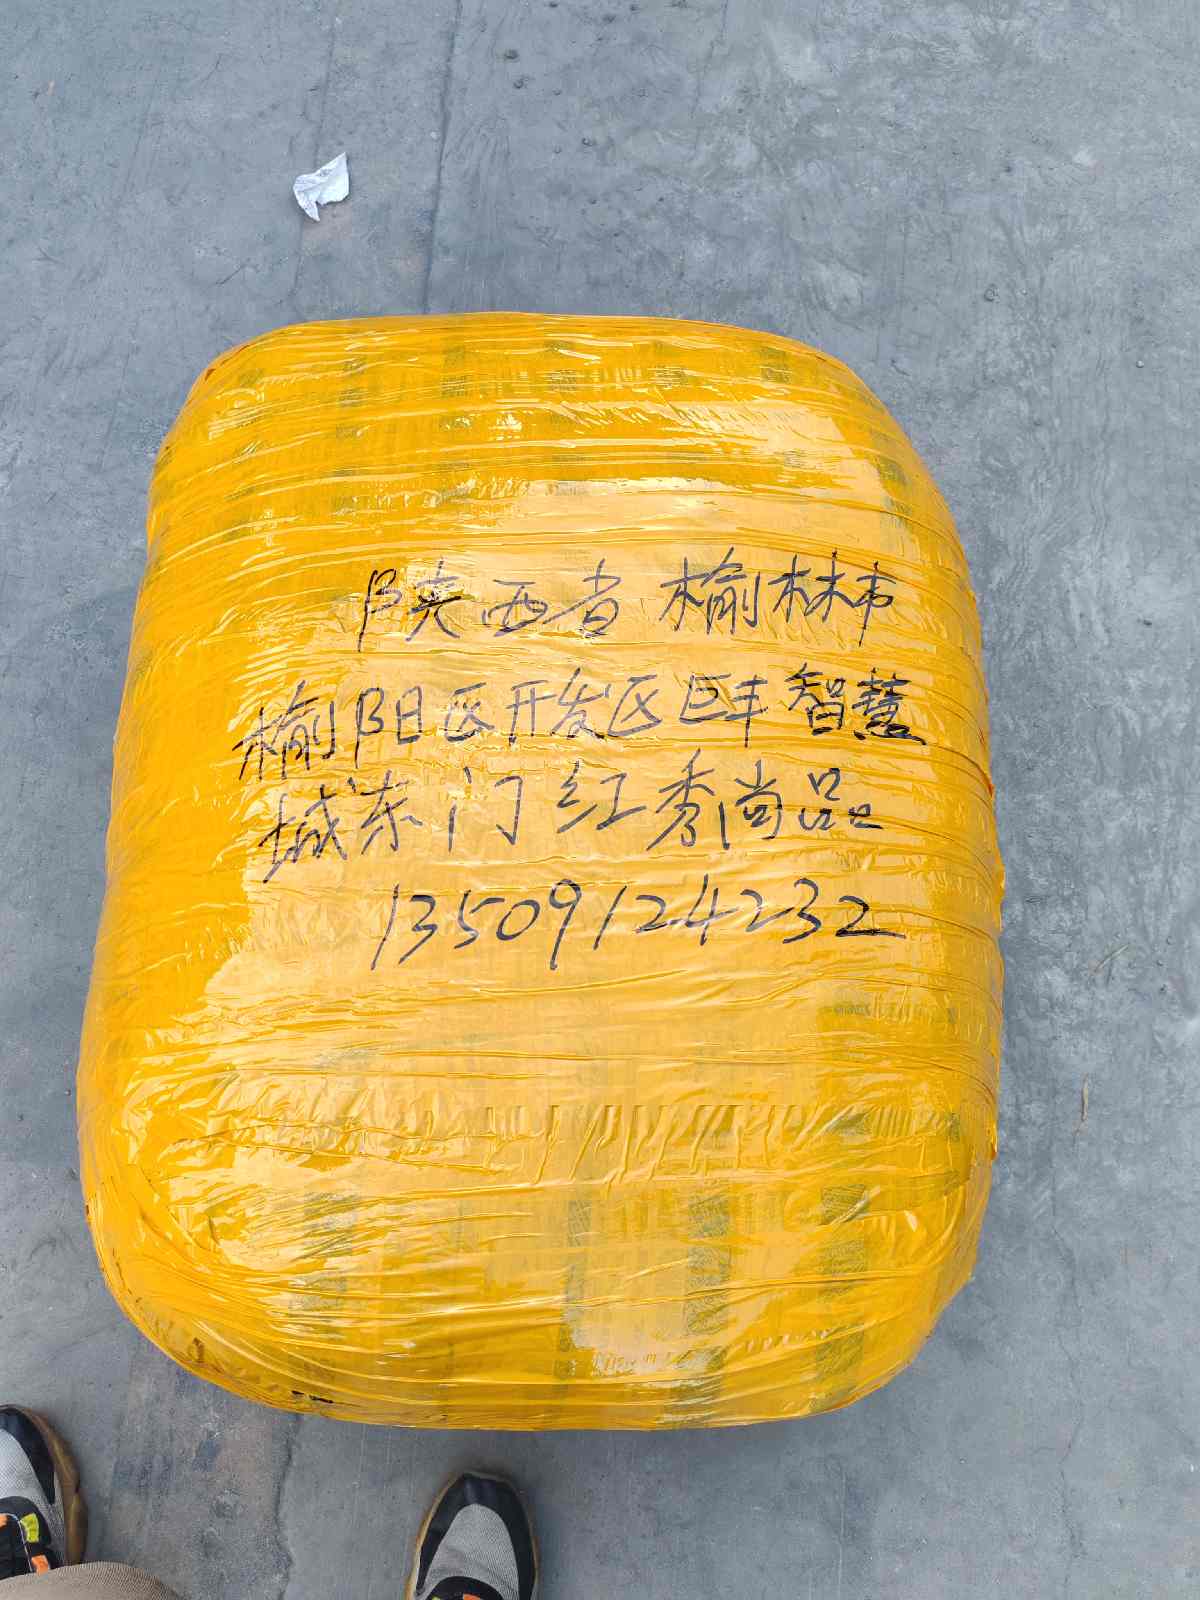 陕西省 榆林市
榆阳区开发区巨丰智慧
城东门 红秀尚品
13509124232